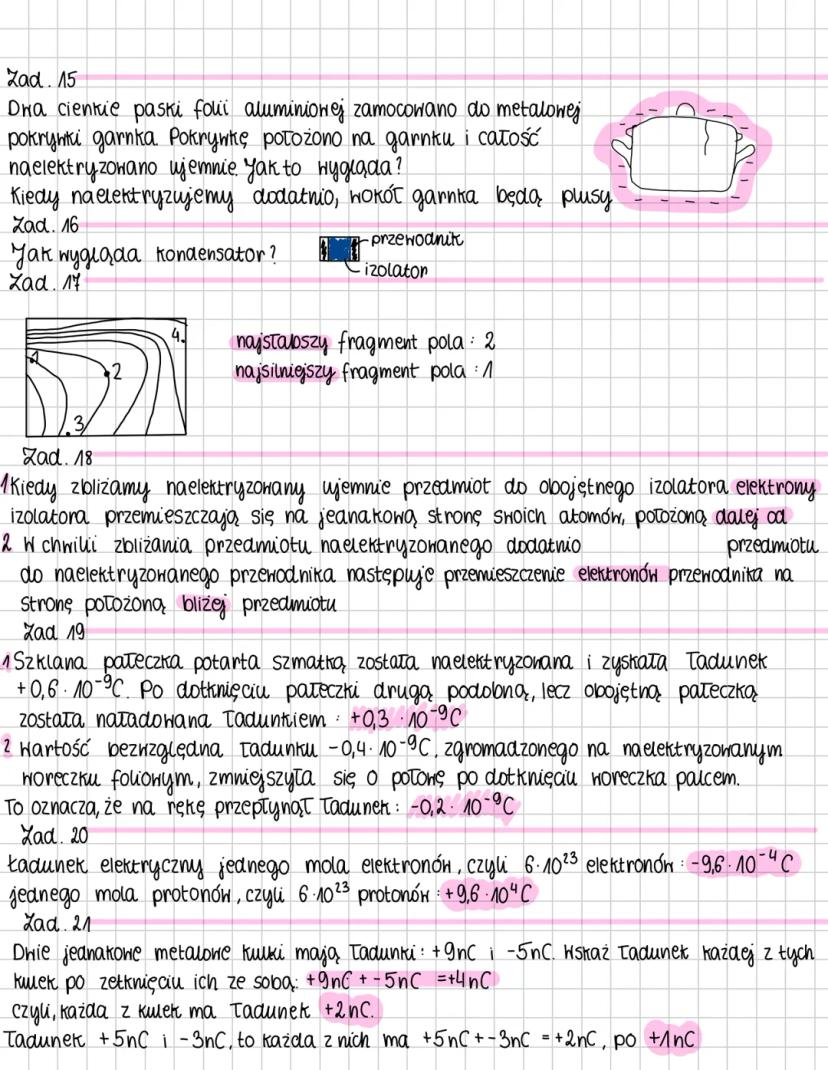 Zad. 15
Dwa cienkie paski folii aluminiowej zamocowano do metalowej
pokrywki garnka. Pokrywkę położono na garnku i całość
naelektryzowano ujemnie. Jak to wygląda?
Kiedy naelektryzujemy dodatnio, wokół garnka będą plusy
Zad. 16
Jak wygląda kondensator?
przewodnik
izolator
Zad. 17
1
2
3
4.
najsłabszy fragment pola : 2
najsilniejszy fragment pola : 1
Zad. 18
1 Kiedy zbliżamy naelektryzowany ujemnie przedmiot do obojętnego izolatora elektrony
izolatora przemieszczają się na jednakową stronę swoich atomów, położoną dalej od
przedmiotu
2 W chwili zbliżania przedmiotu naelektryzowanego dodatnio
do naelektryzowanego przewodnika następuje przemieszczenie elektronów przewodnika na
stronę położoną bliżej przedmiotu
Zad 19
1 Szklana pałeczka potarta szmatką została naelektryzowana i zyskała ładunek
+0,6 · 10⁻⁹C. Po dotknięciu pałeczki drugą podobną, lecz obojętną pałeczką
została naładowana ładunkiem : +0,3 · 10⁻⁹C
2 Wartość bezwzględna ładunku -0,4 · 10⁻⁹C, zgromadzonego na naelektryzowanym
woreczku foliowym, zmniejszyła się o połowę po dotknięciu woreczka palcem.
To oznacza, że na rękę przepłynął ładunek : -0,2 · 10⁻⁹C
Zad. 20
Ładunek elektryczny jednego mola elektronów, czyli 6·10²³ elektronów : -9,6 · 10⁻⁴C
jednego mola protonów, czyli 6·10²³ protonów : +9,6 · 10⁴C
Zad. 21
Dwie jednakowe metalowe kulki mają ładunki : +9nC i -5nC. Wskaż ładunek każdej z tych
kulek po zetknięciu ich ze sobą: +9nC + -5nC =+4nC
czyli, każda z kulek ma ładunek +2nC.
Ładunek +5nC i -3nC, to każda z nich ma +5nC+-3nC = +2nC, po +1nC